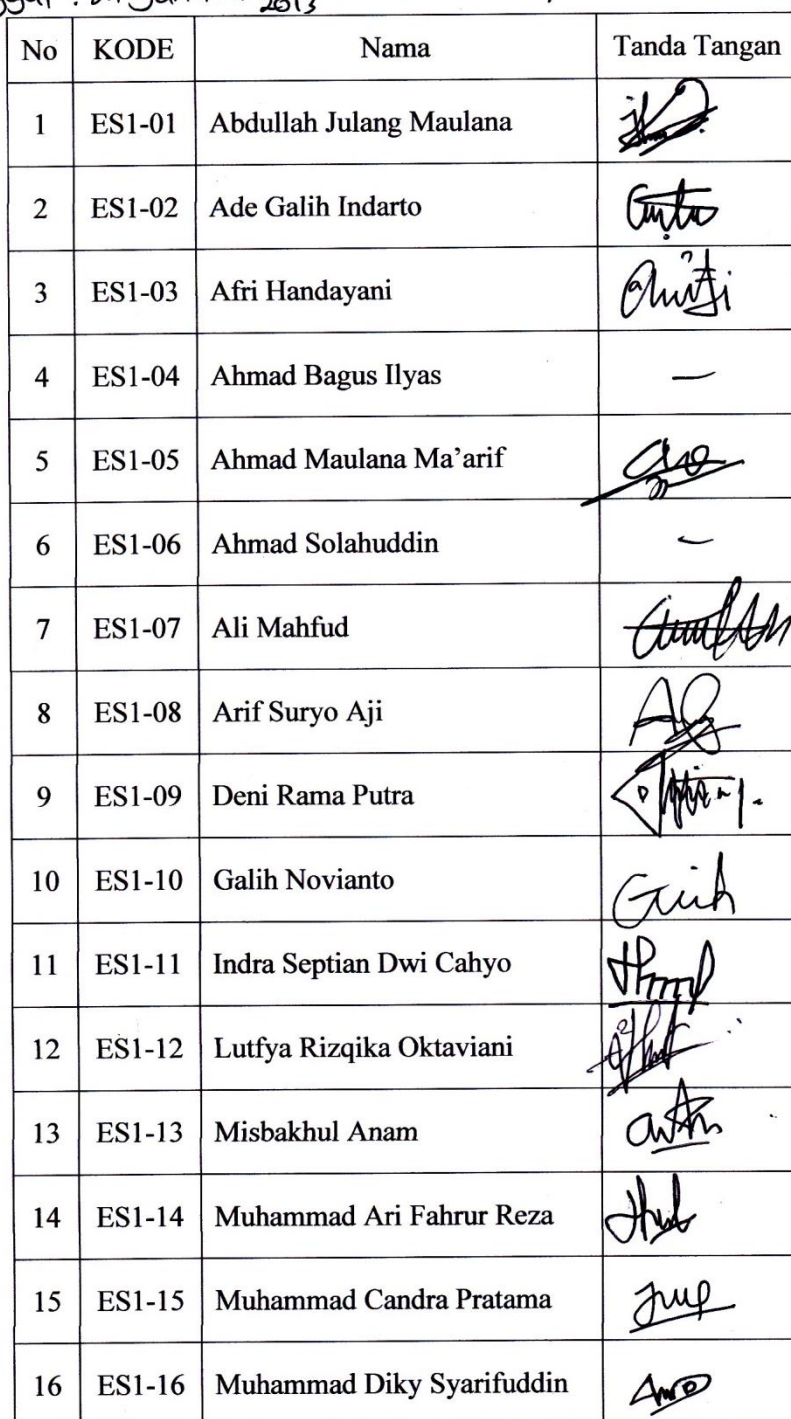 2013
No KODE Nama Tanda Tangan
1 ES1-01 Abdullah Julang Maulana
2 ES1-02 Ade Galih Indarto
3 ES1-03 Afri Handayani
4 ES1-04 Ahmad Bagus Ilyas —
5 ES1-05 Ahmad Maulana Ma’arif
6 ES1-06 Ahmad Solahuddin —
7 ES1-07 Ali Mahfud
8 ES1-08 Arif Suryo Aji
9 ES1-09 Deni Rama Putra
10 ES1-10 Galih Novianto
11 ES1-11 Indra Septian Dwi Cahyo
12 ES1-12 Lutfya Rizqika Oktaviani
13 ES1-13 Misbakhul Anam
14 ES1-14 Muhammad Ari Fahrur Reza
15 ES1-15 Muhammad Candra Pratama
16 ES1-16 Muhammad Diky Syarifuddin